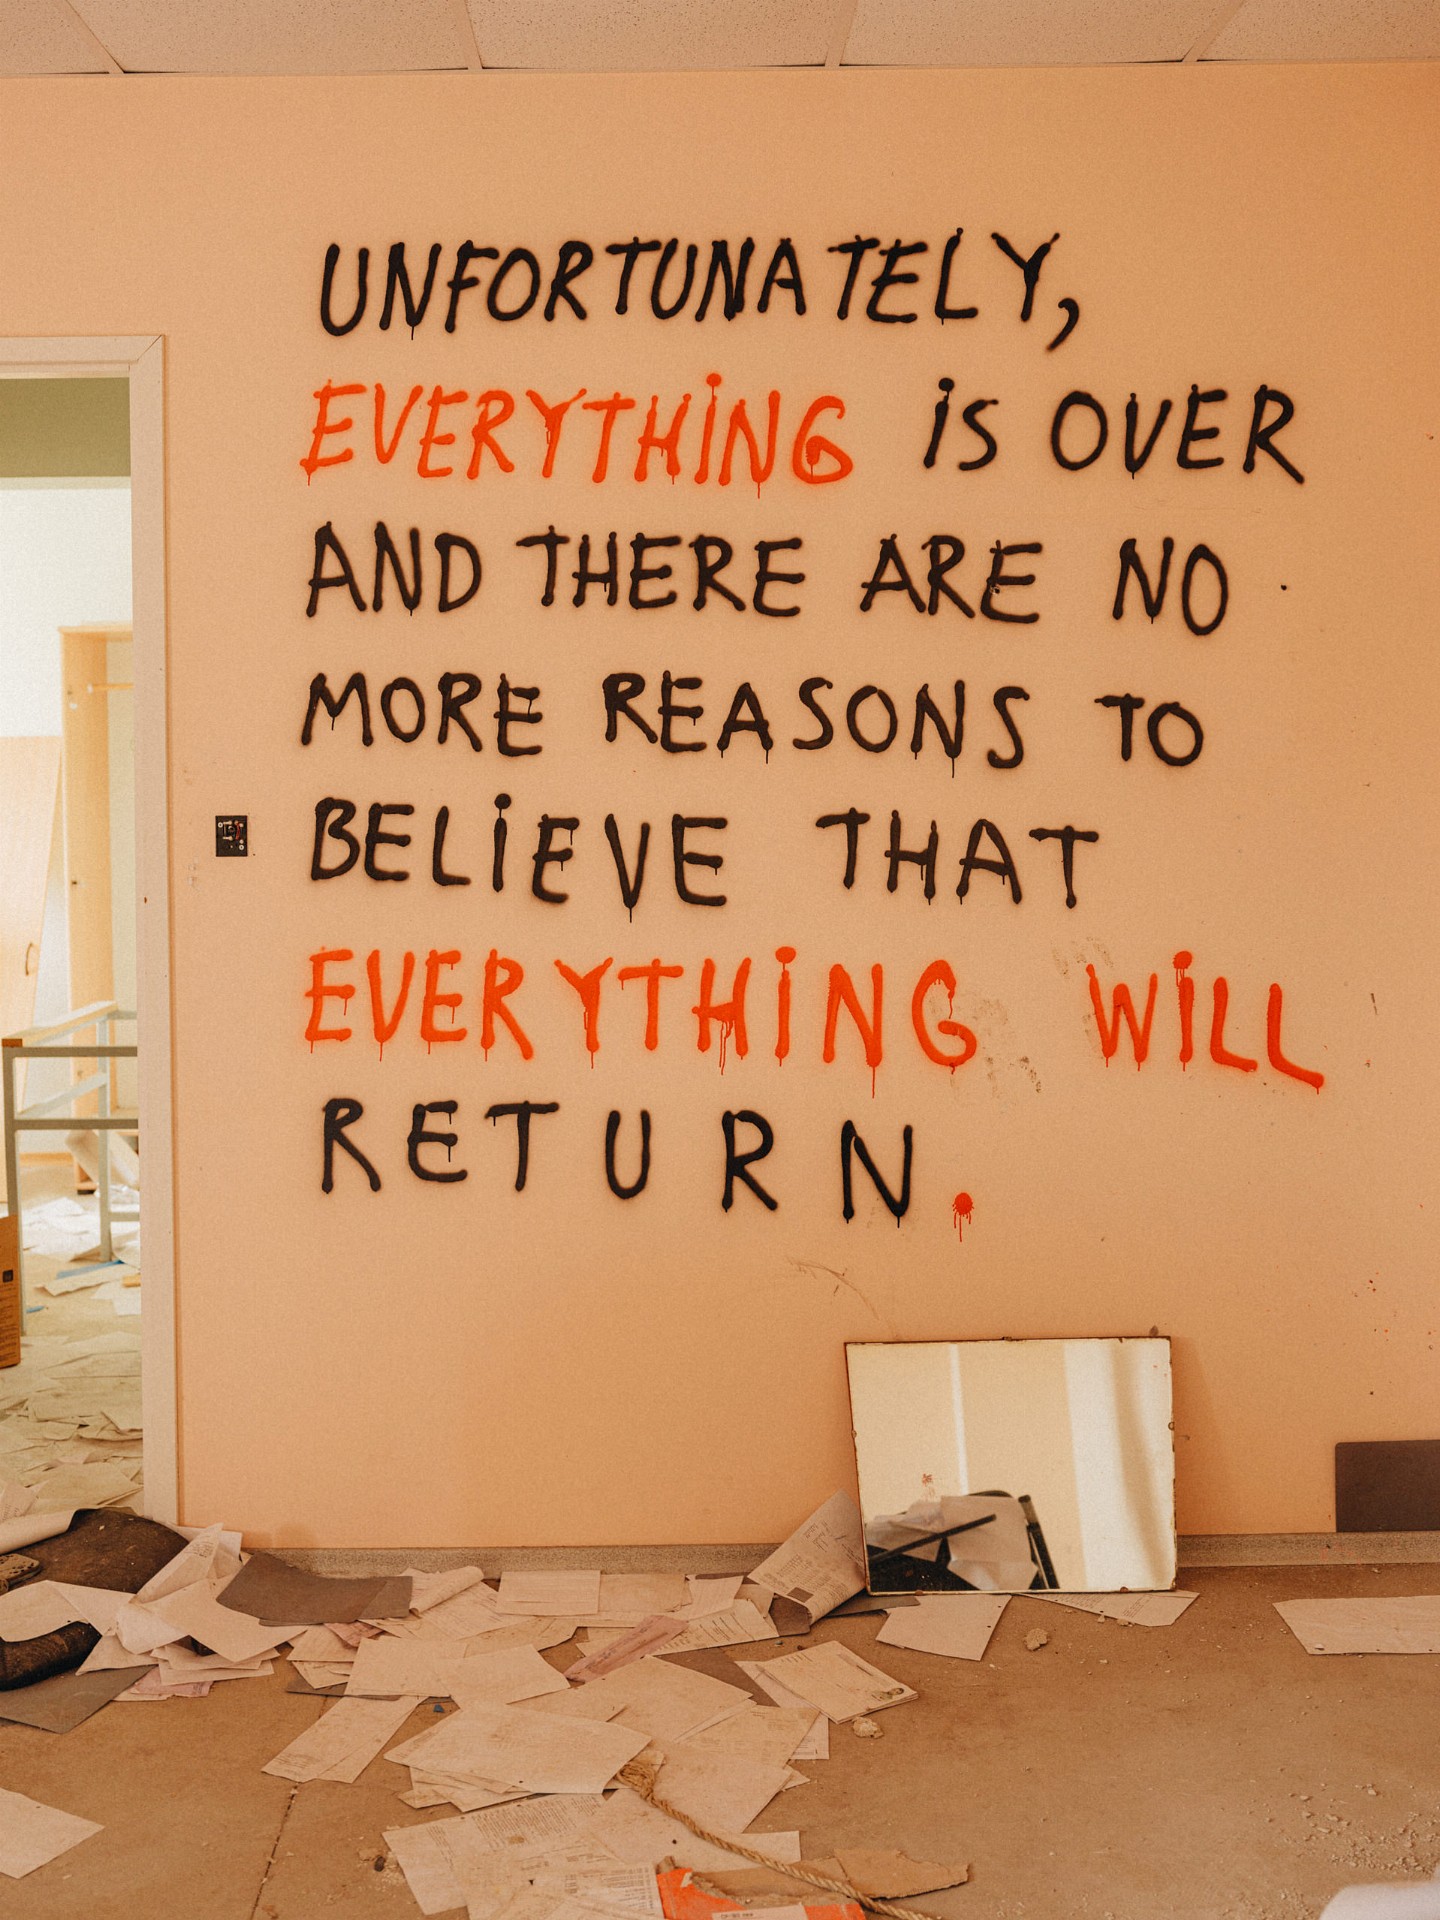 UNFORTUNATELY,
EVERYTHiNG iS OVER
AND THERE ARE NO
MORE REASONS TO
BELiEVE THAT
EVERYTHiNG WiLL
RETURN.